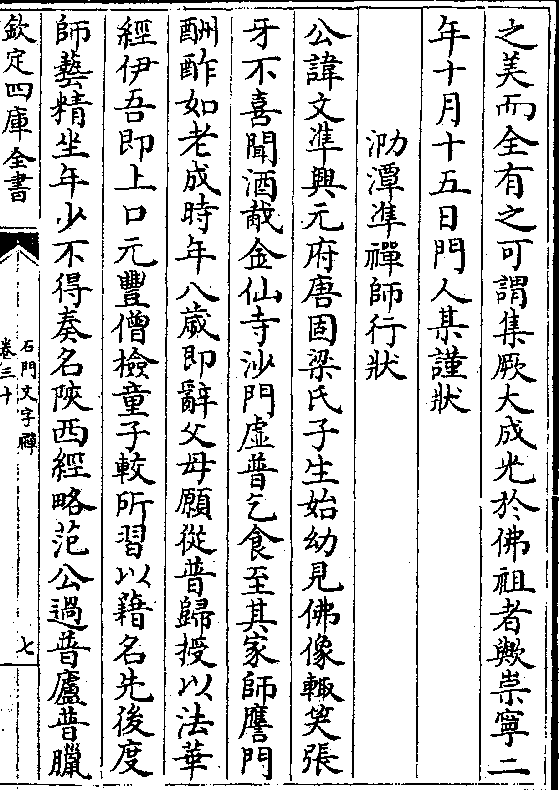 之美而全有之可謂集厥大成光於佛祖者歟崇寧二
年十月十五日門人某謹狀
泐潭準禪師行狀
公諱文準興元府唐固梁氏子生始幼見佛像輒笑張
牙不喜聞酒胾金仙寺沙門虛普乞食至其家師譍門
酬酢如老成時年八歲即辭父母願從普歸授以法華
經伊吾即上口元豐僧檢童子較所習以籍名先後度
師藝精坐年少不得奏名陝西經略范公過普廬普臘
欽定四庫全書
石門文字禪
卷三十
七